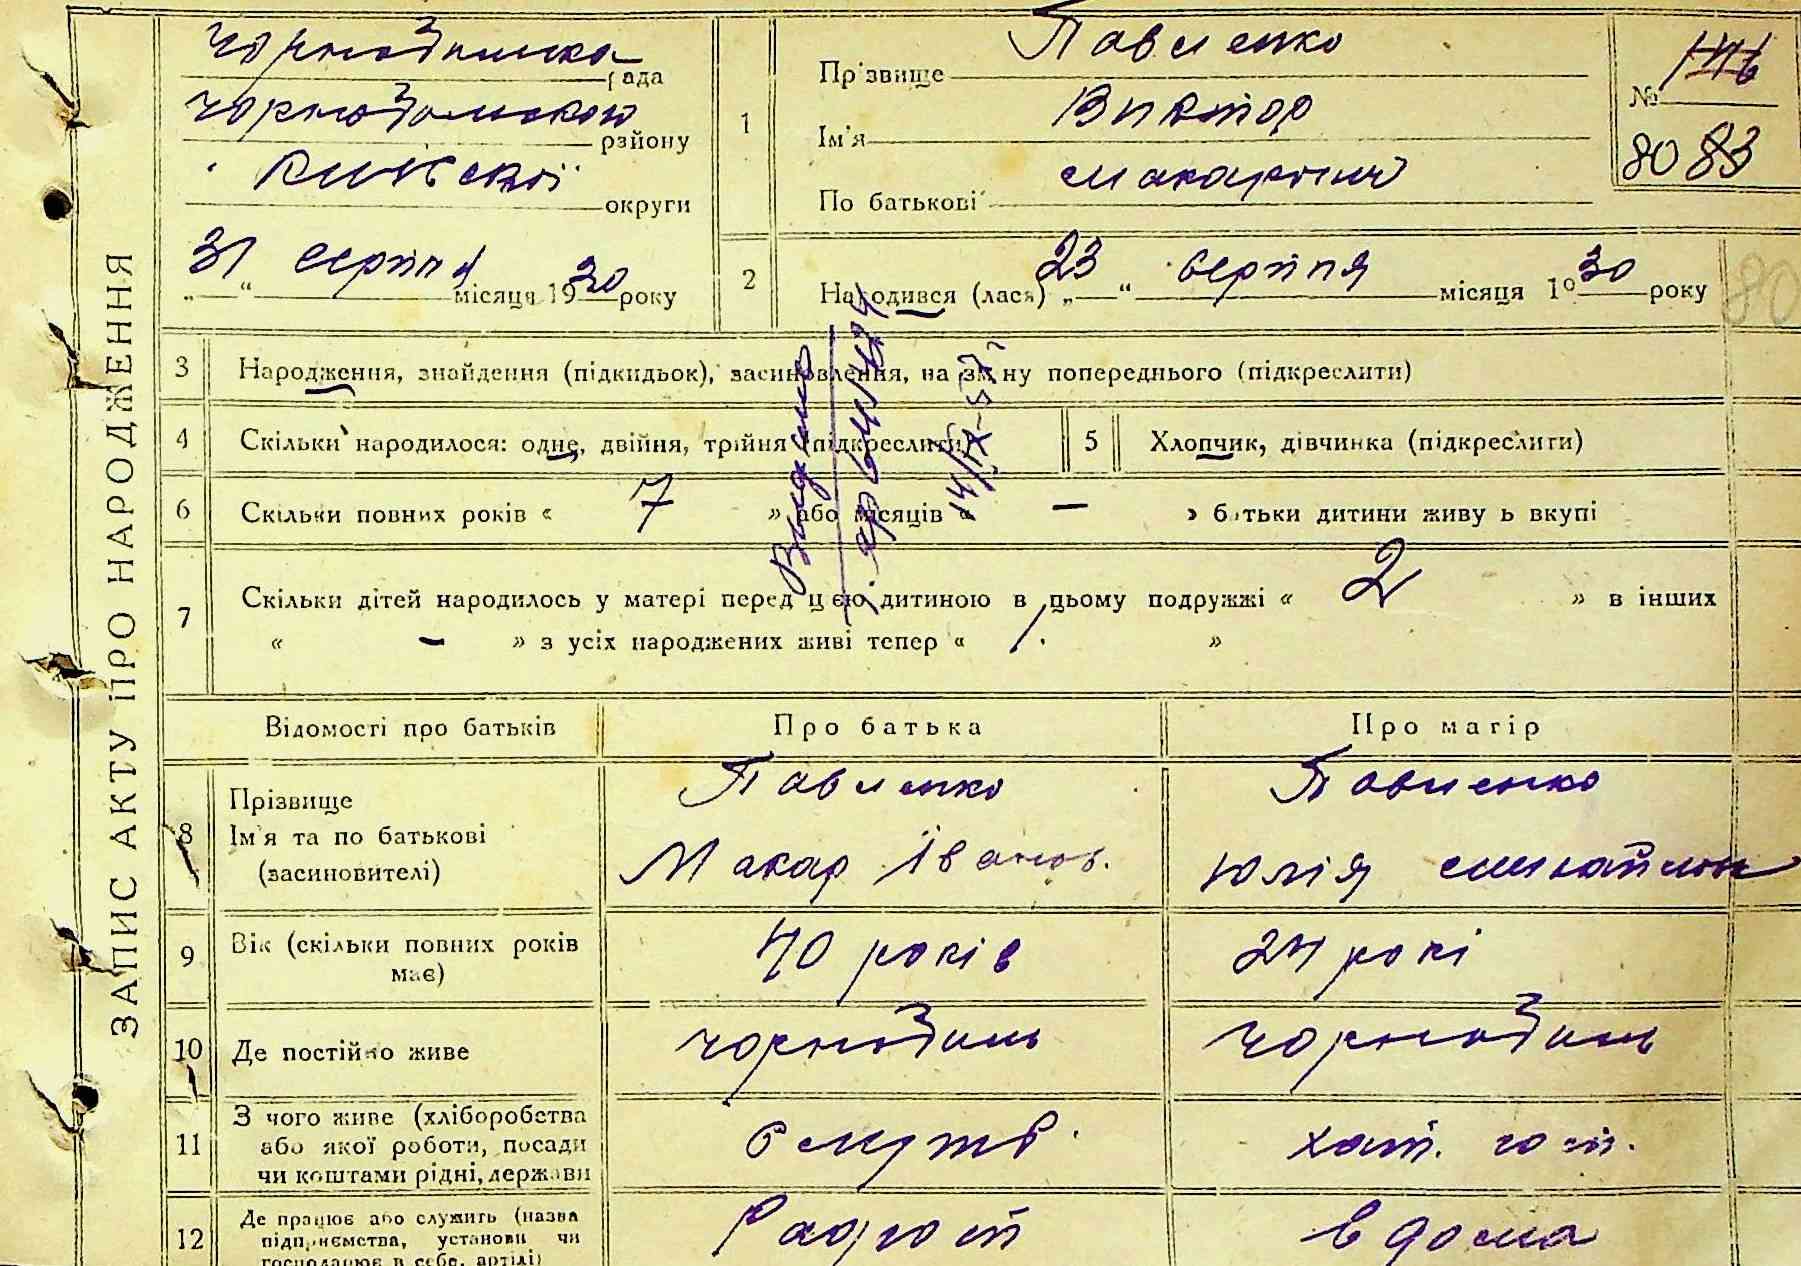 ЗАПИС АКТУ ПРО НАРОДЖЕННЯ
Чорнобильска рада
Чорнобильского району
Київської округи
„31“ серпня місяця 1930 року
1
Прізвище Павленко
Ім'я Виктор
По батькові Макарович
№
80 83
2
Народився (лася) „23“ серпня місяця 1930 року
80
3 Народження, знайдення (підкидьок), засиновлення, на зміну попереднього (підкреслити)
4 Скільки народилося: одне, двійня, трійня (підкреслити)
5 Хлопчик, дівчинка (підкреслити)
6 Скільки повних років « 7 » або місяців « — » батьки дитини живуть вкупі
7 Скільки дітей народилось у матері перед цією дитиною в цьому подружжі « 2 » в інших
« — » з усіх народжених живі тепер « 1. »
Відомості про батьків Про батька Про матір
8 Прізвище Павленко Павленко
Ім'я та по батькові Макар Іванов. Юлія
(засиновителі)
9 Вік (скільки повних років має) 40 років 24 рокі
10 Де постійно живе Чорнобиль Чорнобиль
11 З чого живе (хліборобства
або якої роботи, посади
чи коштами рідні, держави хат. гот.
12 Де працює або служить (назва
підприємства, установи чи
господарює в себе, артілі) в дома